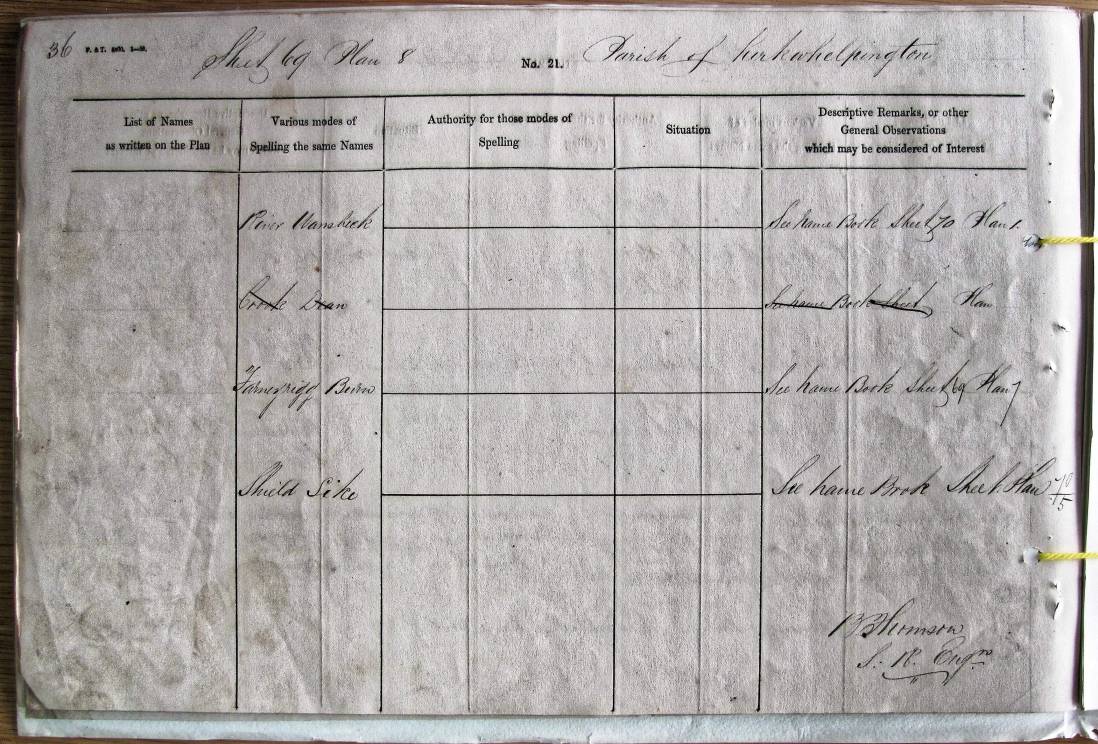 36 Sheet 69 Plan 8 No. 21. Parish of Kirkwhelpington
List of Names
as written on the Plan
Various modes of
Spelling the same Names
Authority for those modes of
Spelling
Situation
Descriptive Remarks, or other
General Observations
which may be considered of Interest
River Wansbeck See name Book Sheet 70 Plan 1.
Crook Dean See name Book Sheet Plan
Farneyrigg Burn See name Book Sheet 69 Plan 7
Shield Sike See name Book Sheet. Plan 70/5
Thomson
S. R. Engrs